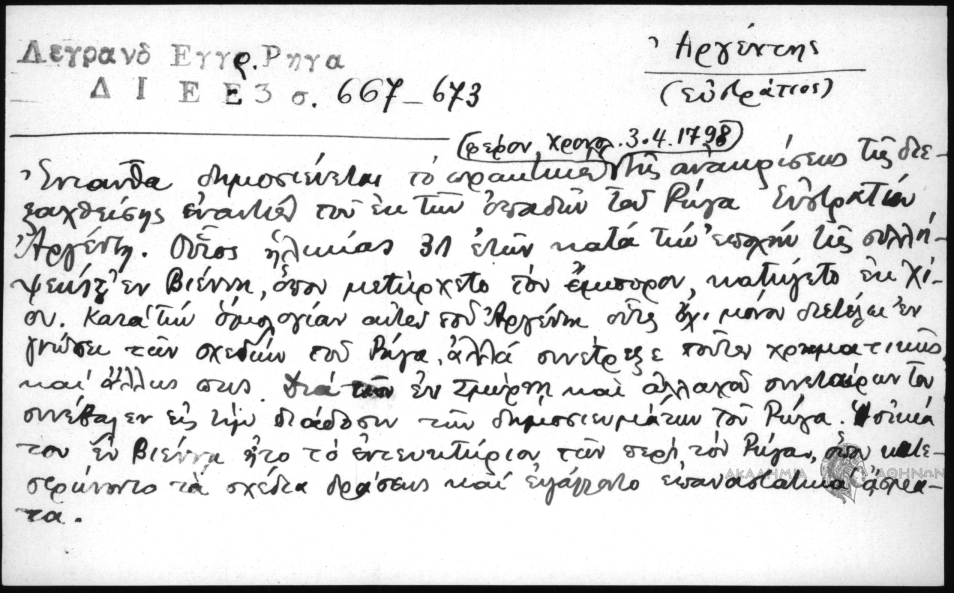 Λεγρανδ Εγγρ. Ρηγα
Δ Ι Ε Ε 3 σ. 667-673
Ἀργέντης
(εὐστράτιος)
(φέρον χρονολ. 3.4.1798)
Ἐνταῦθα δημοσιεύεται τό πρακτικόν τῆς ἀνακρίσεως τῆς διε-
ξαχθείσης ἐναντίον τοῦ ἐκ τῶν ὀπαδῶν τοῦ Ρήγα Εὐστρατίου
Ἀργέντη. Οὗτος ἡλικίας 31 ἐτῶν κατά τήν ἐποχήν τῆς συλλή-
ψεώς του ἐν Βιέννῃ, ὅπου μετήρχετο τόν ἔμπορον, κατήγετο ἐκ Χί-
ου. Κατά τήν ὁμολογίαν αὐτοῦ τοῦ Ἀργέντη οὗτος ὄχι μόνον διετέλει ἐν
γνώσει τῶν σχεδίων τοῦ Ρήγα, ἀλλά συνέτρεξε τοῦτον χρηματικῶς
καί ἄλλως πως. Διά τῶν ἐν Σμύρνῃ καί ἀλλαχοῦ συνεταίρων του
συνέβαλεν εἰς τήν διάδοσιν τῶν δημοσιευμάτων τοῦ Ρήγα. Ἡ οἰκία
του ἐν Βιέννῃ ἦτο τό ἐντευκτήριον τῶν περί τόν Ρήγαν, ὅπου κατε-
στρώνοντο τά σχέδια δράσεως καί ἐψάλλοντο ἐπαναστατικά ἄσμα-
τα.
ΑΚΑΔΗΜΙΑ ΑΘΗΝΩΝ